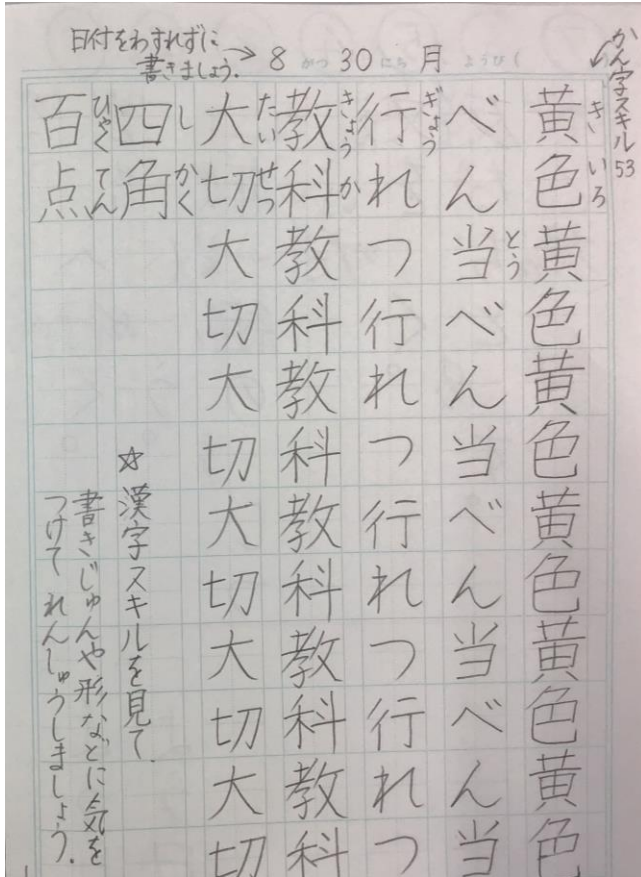 日付をわすれずに
書きましょう.→ 8 がつ 30 にち 月 ようび(
かん字スキル53
きいろ
黄色黄色黄色黄色黄色黄色
とう
べん当べん当べん当べん当
ぎょう
行れつ行れつ行れつ行れつ
きょうか
教科教科教科教科教科教科
たいせつ
大切大切大切大切大切大切
しかく
四角
ひゃくてん
百点
☆漢字スキルを見て、
書きじゅんや形などに気を
つけてれんしゅうしましょう。